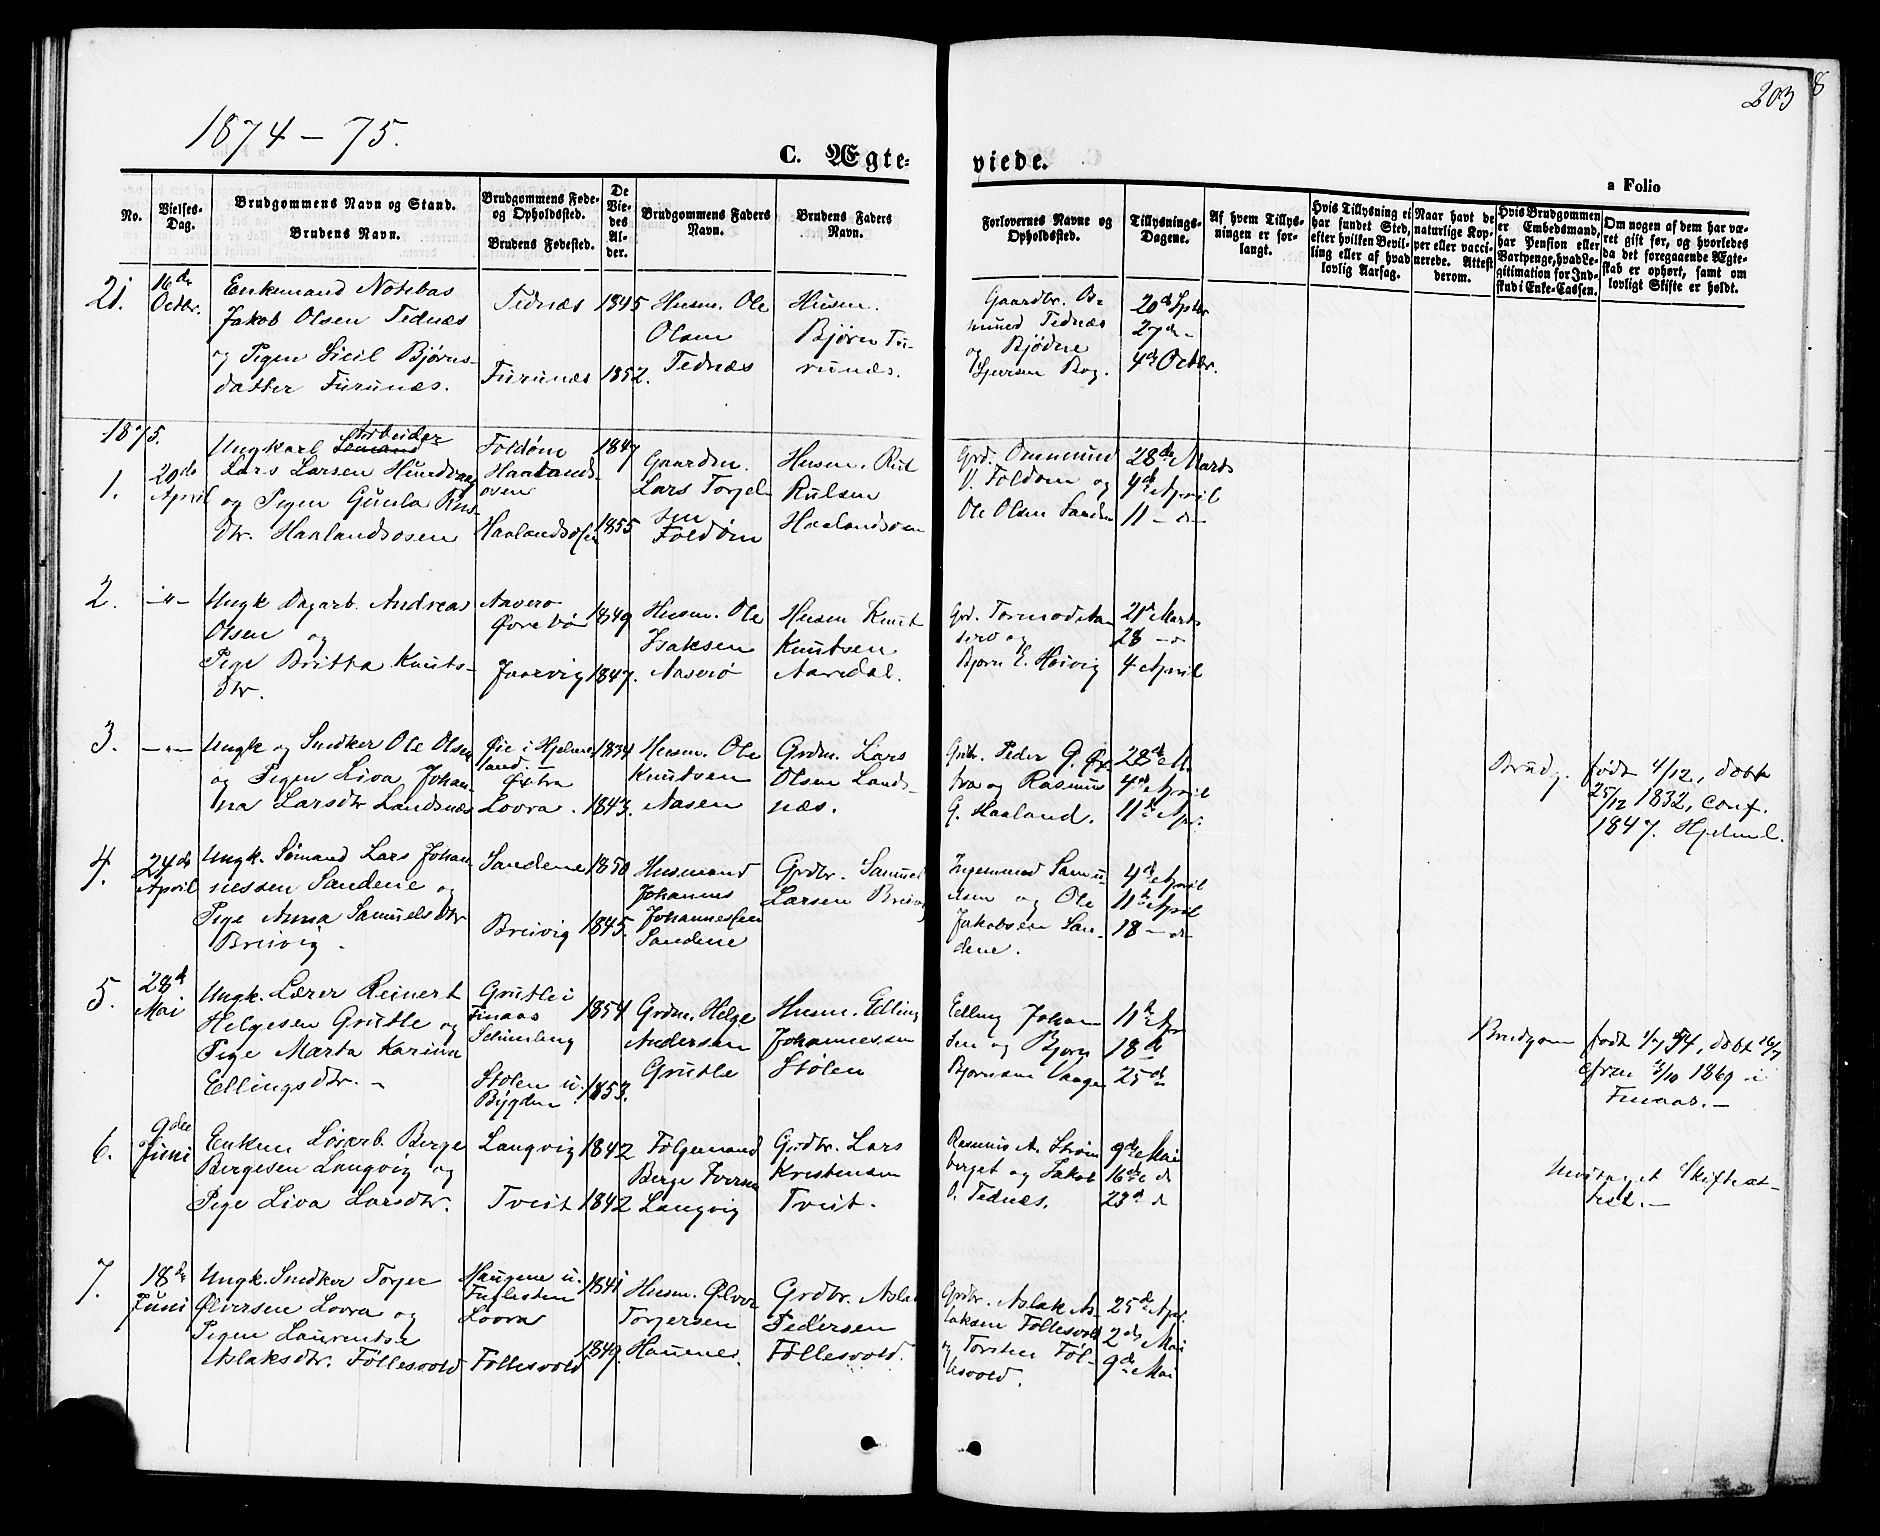 203
8
1874 – 75.
C. Ægte-
viede.
a Folio
No.
Vielses-
Dag.
Brudgommens Navn og Stand.
Brudens Navn.
Brudgommens Føde-
og Opholdssted.
Brudens Fødested.
De
Vie-
des
Al-
der.
Brudgommens Faders
Navn.
Brudens Faders
Navn.
Forlovernes Navne og
Opholdssted.
Tillysnings-
Dagene.
Af hvem Tillys-
ningen er for-
langt.
Hvis Tillysning ei
har fundet Sted,
efter hvilken Bevil-
ling eller af hvad
lovlig Aarsag.
Naar havt de
naturlige Kop-
per eller vacci-
nerede. Attest
derom.
Hvis Brudgommen
er Embedsmand,
har Pension eller
Vartpenge, hvad Le-
gitimation for Ind-
skud i Enke-Cassen.
Om nogen af dem har væ-
ret gift før, og hvorledes
da det foregaaende Ægte-
skab er ophørt, samt om
lovligt Skifte er holdt.
21.
16de
Octbr.
Enkemand Notebas
Jakob Olsen Tednæs
og Pigen Sicil Bjørns-
datter Furunæs.
Tednæs
Furunæs
1845
1852.
Husm. Ole
Olsen
Tednæs
Husm.
Bjørn Fu-
runæs.
Gaardbr. Os-
mund Tednæs
og Bjødne
20de Septbr
27de –
4de Octbr.
1875.
1.
20de
April
Ungkarl Arbeider
Lars Larsen
og Pigen Gunla
Dtr. Haalandsosen
Foldøen
Haalands-
osen
Haalandsosen
1847
1855
Gaardm.
Lars Torjel-
sen
Foldøen
Husm. Rut
Rutsen
Haalandsosen
Grd. Ommund
V. Foldøen og
Ole Olsen Sanden
28de Marts
4de April
11 – d –
2.
–"–
Ungk Dagarb. Andreas
Olsen og
Pige Britta Knuts-
dtr.
Aaserø
Øvrebø
1849
1847.
Husm. Ole
Isaksen
Aaserø
Husm Knut
Knutsen
Aaredal.
Grd. Tormod Aa-
serø og
Bjørn E. Høivig
21d Marts
28 – d
4 April
3.
–"–
Ungk og Snedker Ole Olsen
og Pigen Liva Johan-
na Larsdtr Landsnæs
Øie i Hjelme-
land. –
Øxtra
Lovra.
1834
1843.
Husm. Ole
Knutsen
Aasen
Grdm. Lars
Olsen Lands-
næs.
Grdbr. Peder G. Øx-
tra og Rasmus
G. Haaland.
28de M.
4de April
11te Apr.
Brudg. født 4/12, døbt
25/12 1832, conf.
1847. Hjelmel.
4.
24de
April
Ungk. Sømand Lars Johan-
nessen Sandene og
Pige Anna Samuelsdtr
Breivig –
Sandene
Breivig
1850
1845.
Husmand
Johannes
Johannessen
Sandene
Grdbr. Samuel
Larsen Breivig
Ingemund Samu-
elsen og Ole
Jakobsen San-
dene.
4de April
11te April
18 – d –
5.
28d
Mai
Ungk. Lærer Reinert
Helgesen Grutle og
Pige Marta Karina
Ellingsdtr. –
Grutle i
Finaas
Stølen u.
Bygden
1854
1853.
Grdm. Helge
Andersen
Grutle
Husm. Elling
Johannessen
Stølen
Elling Johan-
sen og Bjørn
Bjørnsen Vaage
11te Apr
18de
25de
Brudgom født 1/7 54, døbt 16/7
cfrm 3/10 1869 i
Finaas. –
6.
9de
Juni
Enkem Løsarb. Berge
Bergesen Langvig og
Pige Liva Larsdtr.
Langvig
Tveit
1842
1842
Følgemand
Berge Iversen
Langvig
Grdbr. Lars
Kristensen
Tveit.
Rasmus A. Strøm-
berget og Jakob
O. Tednæs.
9de Mai
16de d
23d d
Modtaget Skifteat-
test. –
7.
18de
Juni
Ungk. Snedker Torjer
Ølversen Lovra og
Pigen Laurentse
Aslaksdtr.Føllesvold
Haugene u.
Fuglesteen
Lovra
Føllesvold
1841
1849.
Husm. Ølver
Torjersen
Haugene
Grdbr. Aslak
Pedersen
Føllesvold.
Grdbr. Aslak As-
laksen Føllesvold
og Torsten Føl-
lesvold.
25de Apr.
2de Mai
9de Mai